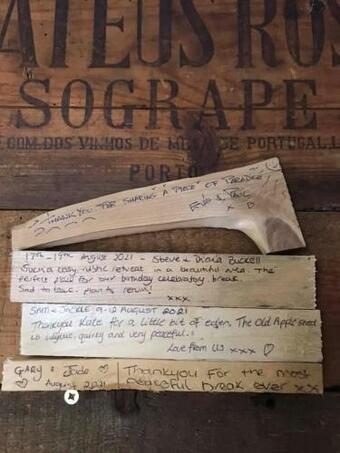 ATEUS ROS
SOGRAPE
COM. DOS VINHOS DE MESA DE PORTUGAL, L
PORTO
THANKYOU FOR SHARING A PIECE OF PARADISE!
& PAUL
x B
17th - 19th August 2021 - Steve & Diana Buckell
Such a cosy, rustic retreat in a beautiful area. The
perfect place for our birthday celebratory break.
Sad to leave. plan to return!
xxx
SAM & JACKIE 9-12 AUGUST 2021
Thankyou Kate for a little bit of eden. The Old Apple shed
is unique, quirky and very peaceful.
Love from us xxx
GARY & Jade
August 2021
Thankyou for the most
peaceful break ever xx